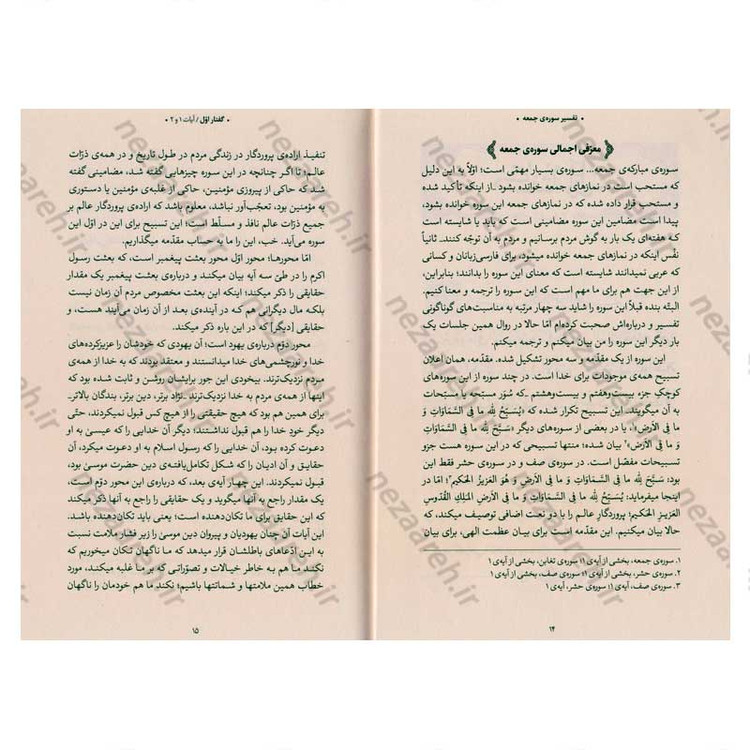 • تفسیر سوره‌ی جمعه •
معرّفی اجمالی سوره‌ی جمعه
سوره‌ی مبارکه‌ی جمعه... سوره‌ی بسیار مهمّی است؛ اوّلاً به این دلیل
که مستحب است در نمازهای جمعه خوانده بشود ـ از اینکه تأکید شده
و مستحب قرار داده شده که در نمازهای جمعه این سوره خوانده بشود،
پیدا است مضامین این سوره مضامینی است که باید یا شایسته است
هفته‌ای یک بار به گوش مردم برسانیم و مردم به آن توجّه کنند ـ ثانیاً
نفْس اینکه در نمازهای جمعه خوانده میشود، برای فارسی‌زبانان و کسانی
که عربی نمیدانند شایسته است که معنای این سوره را بدانند؛ بنابراین،
از این جهت هم برای ما مهم است که این سوره را ترجمه و معنا کنیم.
البتّه بنده قبلاً این سوره را شاید سه چهار مرتبه به مناسبت‌های گوناگونی
تفسیر و درباره‌اش صحبت کرده‌ام امّا حالا در روال همین جلسات یک
بار دیگر این سوره را من بیان میکنم و ترجمه میکنم.
این سوره از یک مقدّمه و سه محور تشکیل شده. مقدّمه، همان اعلان
تسبیح همه‌ی موجودات برای خدا است. در چند سوره از این سوره‌های
کوچکِ جزء بیست‌وهفتم و بیست‌وهشتم ـ که سُوَر مسبّحه یا مسبّحات
به آن میگویند ـ این تسبیح تکرار شده که «یُسَبِّحُ لِلّٰهِ ما فِی السَّماوَاتِ وَ
ما فِی الاَرضِ»۱، یا در بعضی از سوره‌های دیگر «سَبَّحَ لِلّٰهِ ما فِی السَّماوَاتِ
وَ ما فِی الاَرضِ»۲ بیان شده؛ منتها تسبیحی که در این سوره هست جزو
تسبیحات مفصّل است. در سوره‌ی صف و در سوره‌ی حشر فقط این
بود: سَبَّحَ لِلّٰهِ ما فِی السَّماوَاتِ وَ ما فِی الاَرضِ وَ هُوَ العَزیزُ الحَکیم؛۳ امّا در
اینجا میفرماید: یُسَبِّحُ لِلّٰهِ ما فِی السَّماوَاتِ وَ ما فِی الاَرضِ المَلِكِ القُدّوسِ
العَزیزِ الحَکیم؛ پروردگار عالم را با دو نعت اضافی توصیف میکند، که
حالا بیان میکنیم. این مقدّمه است برای بیان عظمت الهی، برای بیان
۱. سوره‌ی جمعه، بخشی از آیه‌ی ۱؛ سوره‌ی تغابن، بخشی از آیه‌ی ۱
۲. سوره‌ی حشر، بخشی از آیه‌ی ۱؛ سوره‌ی صف، بخشی از آیه‌ی ۱
۳. سوره‌ی صف، آیه‌ی ۱؛ سوره‌ی حشر، آیه‌ی ۱
۱۴
• گفتار اوّل / آیات ۱ و ۲ •
تنفیذ اراده‌ی پروردگار در زندگی مردم در طول تاریخ و در همه‌ی ذرّات
عالم؛ تا اگر چنانچه در این سوره چیزهایی گفته شد، مضامینی گفته
شد که حاکی از پیروزی مؤمنین، حاکی از غلبه‌ی مؤمنین یا دستوری
به مؤمنین بود، تعجّب‌آور نباشد، معلوم باشد که اراده‌ی پروردگار عالم بر
جمیع ذرّات عالم نافذ و مسلّط است؛ این تسبیح برای این در اوّل این
سوره می‌آید. خب، این را ما به حساب مقدّمه میگذاریم.
امّا محورها؛ محور اوّل محور بعثت پیغمبر است، که بعثت رسول
اکرم را در طیّ سه آیه بیان میکند و درباره‌ی بعثت پیغمبر یک مقدار
حقایقی را ذکر میکند؛ اینکه این بعثت مخصوص مردم آن زمان نیست
بلکه مال دیگرانی هم که در آینده‌ی بعد از آن زمان می‌آیند هست، و
حقایقی [دیگر] که در این باره ذکر میکند.
محور دوّم درباره‌ی یهود است؛ آن یهودی که خودشان را عزیزکرده‌های
خدا و نورچشمی‌های خدا میدانستند و معتقد بودند که به خدا از همه‌ی
مردم نزدیک‌ترند. بیخودی این جور برایشان روشن و ثابت شده بود که
اینها از همه‌ی مردم به خدا نزدیک‌ترند ـ نژاد برتر، دین برتر، بندگان بالاتر ـ
برای همین هم بود که هیچ حقیقتی را از هیچ کس قبول نمیکردند، حتّی
دیگر خودِ خدا را هم قبول نداشتند؛ آن خدایی را که عیسیٰ به او
دعوت کرده بود، آن خدایی را که رسول اسلام به او دعوت میکرد، آن
حقایق و آن ادیان را که شکل تکامل‌یافته‌ی دین حضرت موسیٰ بود،
قبول نمیکردند. این چهار آیه‌ی بعد، که درباره‌ی این محور دوّم است،
یک مقدار راجع به آنها میگوید و یک حقایقی را راجع به آنها ذکر میکند
که این حقایق برای ما تکان‌دهنده است؛ یعنی باید تکان‌دهنده باشد.
این آیات آن چنان یهودیان و پیروان دین موسیٰ را زیر فشار ملامت نسبت
به این ادّعاهای باطلشان قرار میدهد که ما ناگهان تکان میخوریم که
نکند ما هم به خاطر خیالات و تصوّراتی که بر ما غلبه میکند، مورد
خطاب همین ملامتها و شماتتها باشیم؛ نکند ما هم خودمان را ناگهان
۱۵
nezaareh.ir